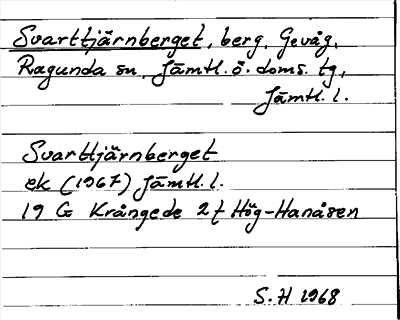 Svarttjärnberget, berg, Gevåg,
Ragunda sn, Jämtl. ö. doms. tg,
Jämtl. l.
Svarttjärnberget
ek (1967) Jämtl. l.
19 G Krångede 2 f Hög-Hanåsen
S. H 1968